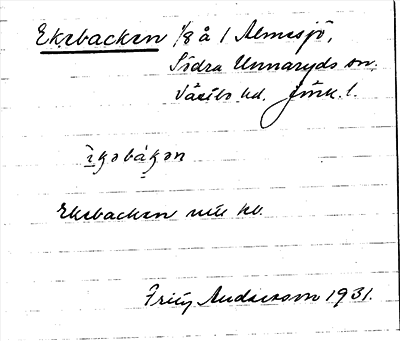 Ekebacken 1/8 å 1 Almesjö,
Södra Unnaryds sn.
Västbo hd. Jönk. l.
ìkəbákən
Ekebacken
Fritz Andersson 1931.